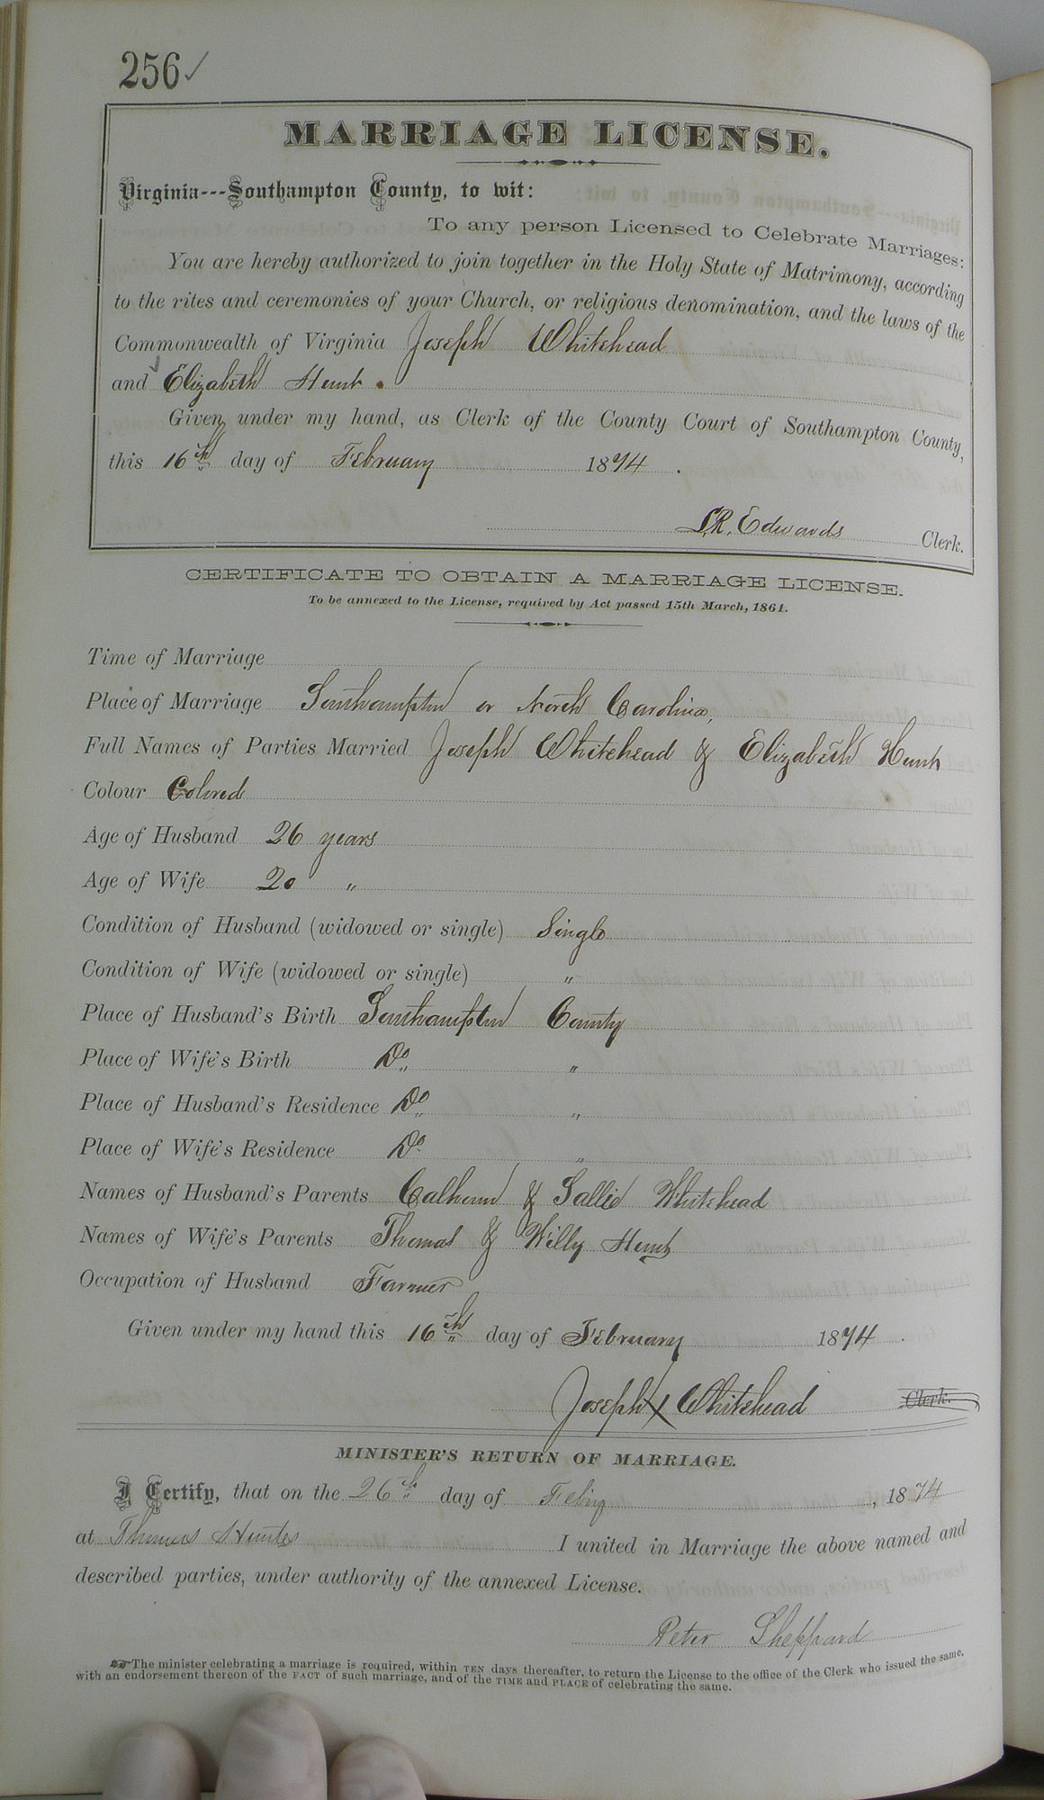 256✓
MARRIAGE LICENSE.
Virginia---Southampton County, to wit:
To any person Licensed to Celebrate Marriages:
You are hereby authorized to join together in the Holy State of Matrimony, according
to the rites and ceremonies of your Church, or religious denomination, and the laws of the
Commonwealth of Virginia Joseph Whitehead
and Elizabeth Hunt.
Given under my hand, as Clerk of the County Court of Southampton County,
this 16th day of February 1874.
L.R. Edwards Clerk.
CERTIFICATE TO OBTAIN A MARRIAGE LICENSE.
To be annexed to the License, required by Act passed 15th March, 1861.
Time of Marriage
Place of Marriage Southampton or North Carolina,
Full Names of Parties Married Joseph Whitehead & Elizabeth Hunt
Colour Colored
Age of Husband 26 years
Age of Wife 20 "
Condition of Husband (widowed or single) Single
Condition of Wife (widowed or single) "
Place of Husband's Birth Southampton County
Place of Wife's Birth Do "
Place of Husband's Residence Do "
Place of Wife's Residence Do "
Names of Husband's Parents Calhoun & Sallie Whitehead
Names of Wife's Parents Thomas & Willy Hunt
Occupation of Husband Farmer
Given under my hand this 16th day of February 1874.
Joseph X Whitehead Clerk.
MINISTER'S RETURN OF MARRIAGE.
I Certify, that on the 26th day of Febry, 1874
at Thomas Hunts I united in Marriage the above named and
described parties, under authority of the annexed License.
Peter Sheppard
The minister celebrating a marriage is required, within TEN days thereafter, to return the License to the office of the Clerk who issued the same,
with an endorsement thereon of the FACT of such marriage, and of the TIME and PLACE of celebrating the same.